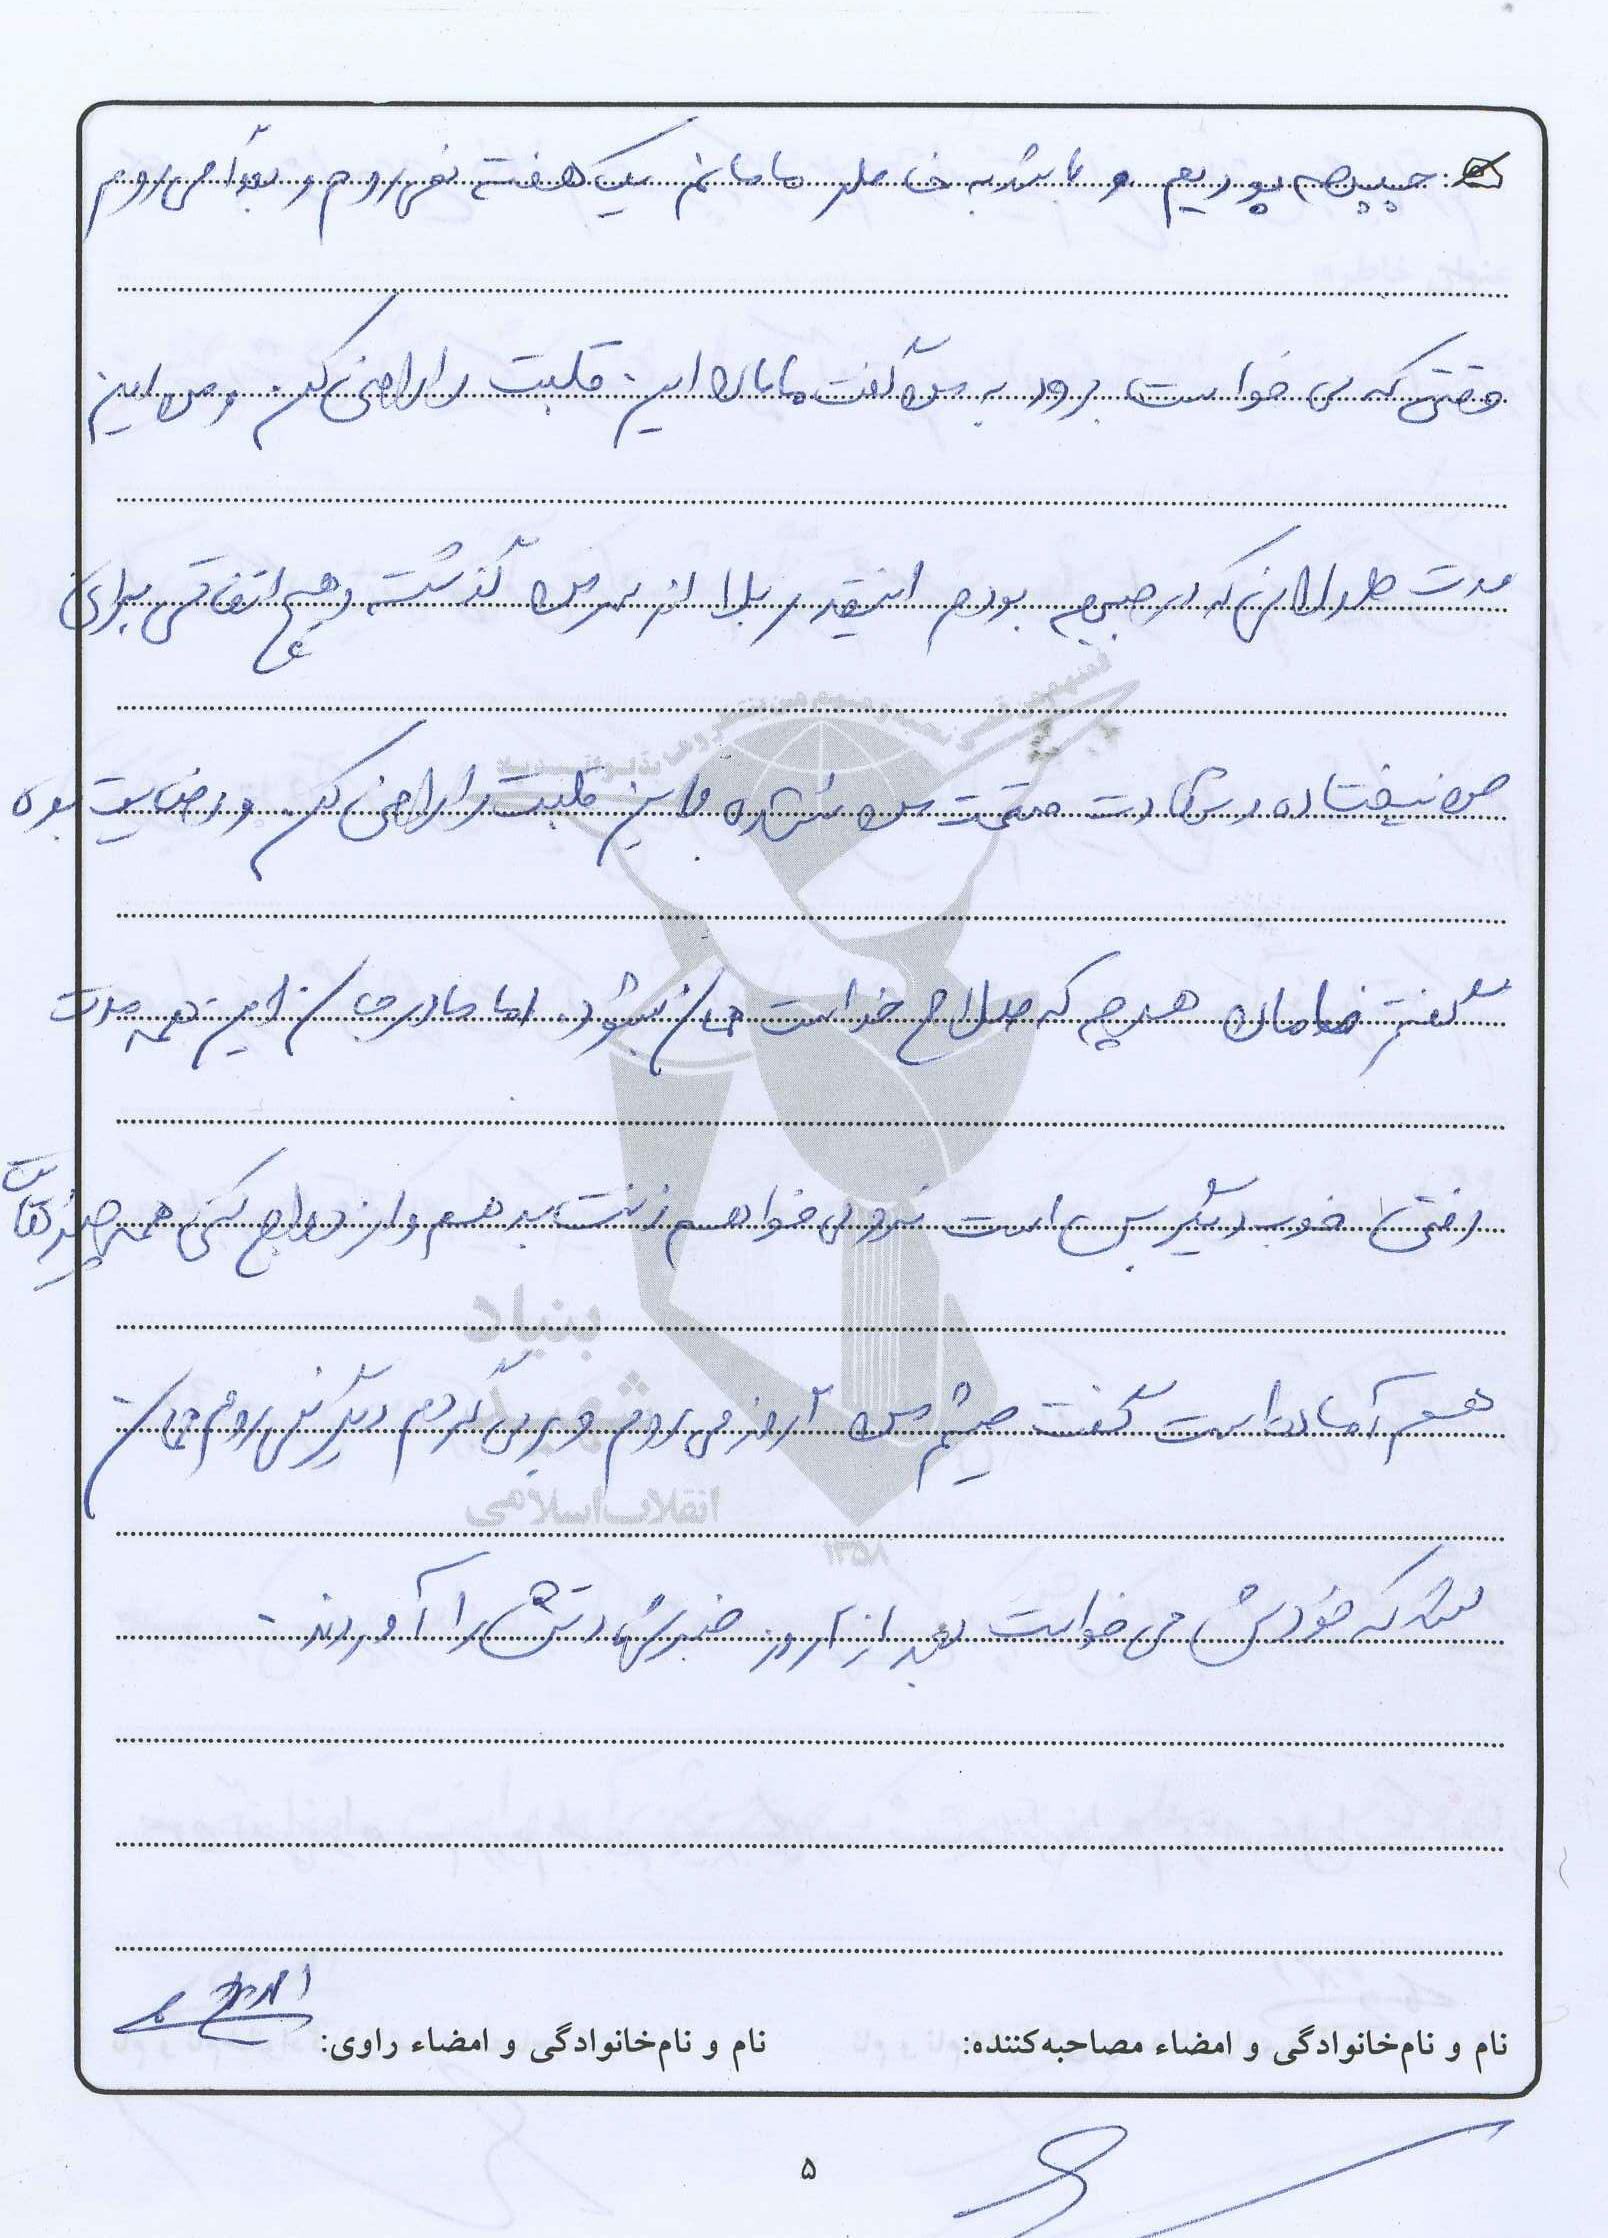 جبهه بودیم و باشد به خاطر مامانم یک هفته نمی روم و بعداً می روم
وقتی که می خواست برود به من گفت مامان این قلبت را راضی کن و من این
مدت طولانی که در جبهه بودم اینقدر بلا از سر من گذشته و هیچ اتفاقی برای
من نیفتاده و شهادت قسمت من نشده این قلبت را راضی کن و رضایت بده
گفتم مامان هر چه که صلاح خداست همان بشود. اما مادر جان این همه مدت
رفتی خوب دیگر بس است نرو می خواهم زنت بدهم و ازدواج کنی همه چیزهات
هم آماده است گفت چشم من ۲ روز می روم و بر می گردم دیگر نمی روم همان
شد که خودش می خواست بعد از ۲ روز خبر شهادتش را آوردند.
نام و نام‌خانوادگی و امضاء مصاحبه‌کننده: نام و نام‌خانوادگی و امضاء راوی:
۵
بنیاد
شهید
انقلاب اسلامی
۱۳۵۸